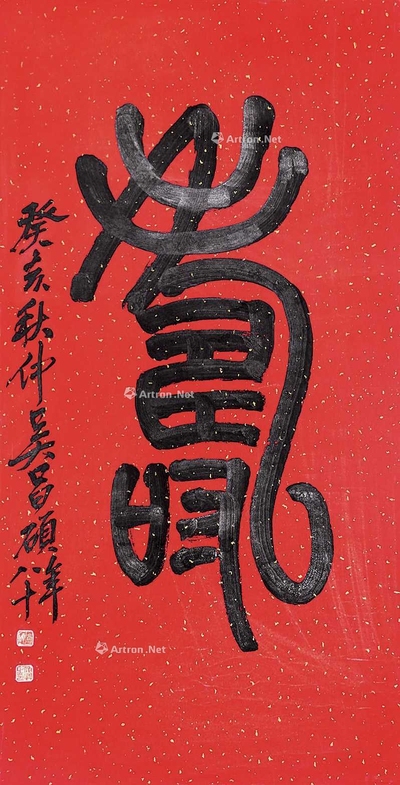 壽
癸亥秋仲吴昌碩年八十
Artron.Net
Artron.Net
Artron.Net